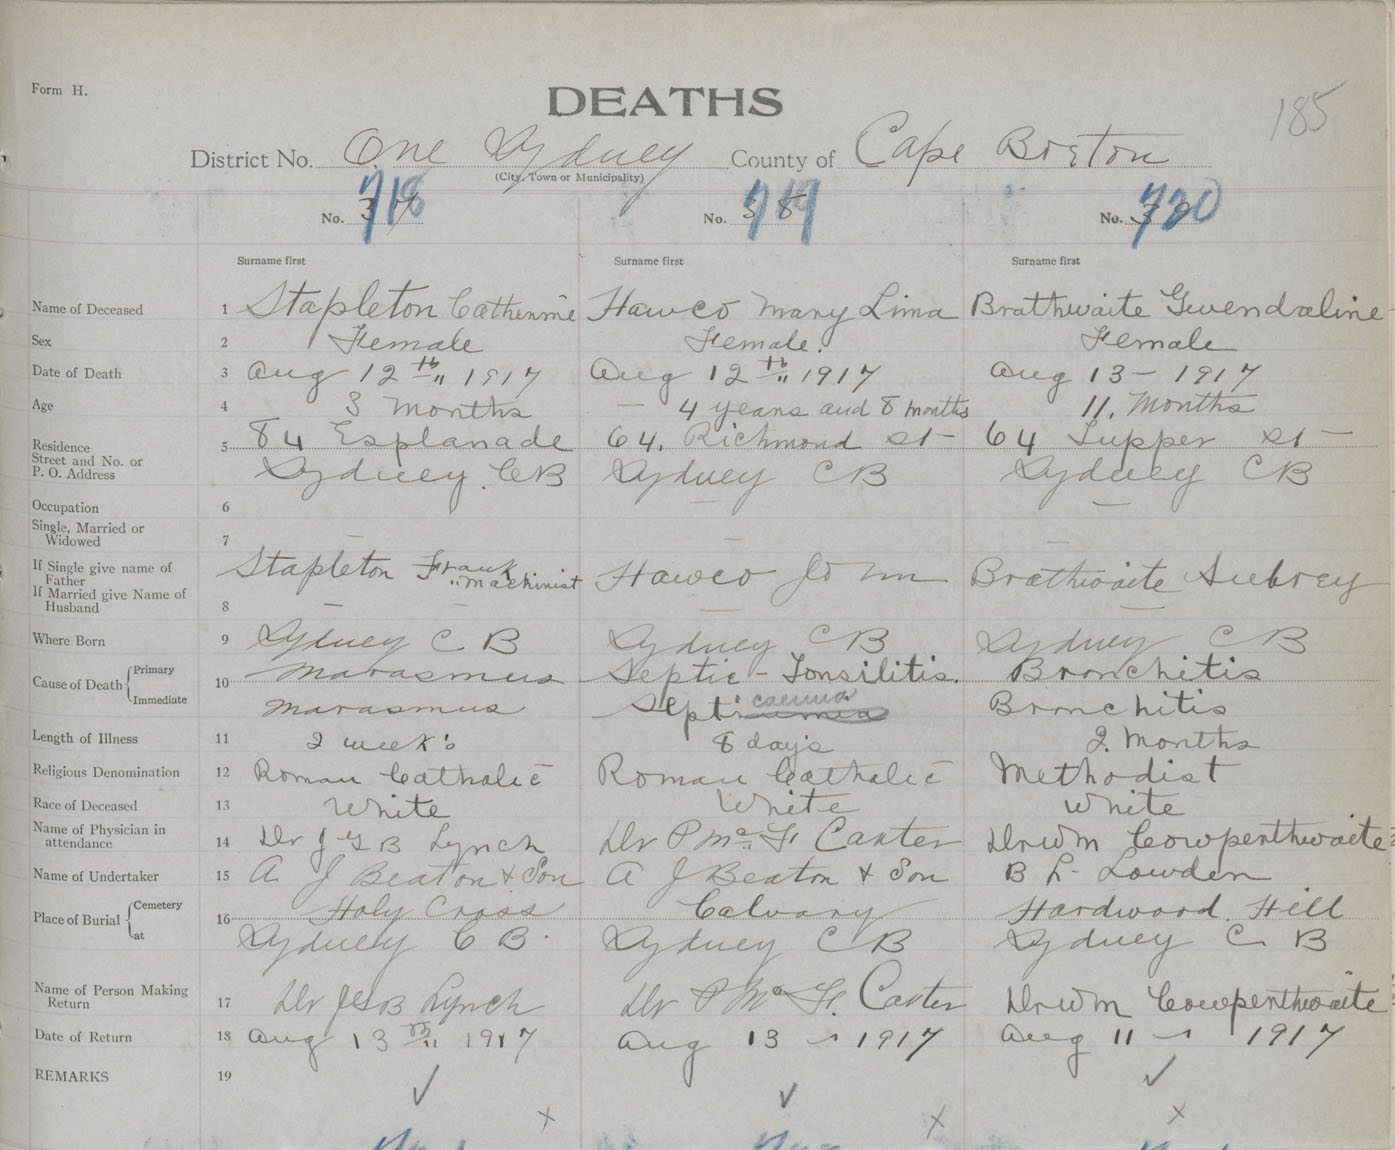 Form H.
DEATHS
185
District No. One Sydney County of Cape Breton
(City, Town or Municipality)
No. 37 718 No. 38 719 No. 39 720
Surname first Surname first Surname first
Name of Deceased 1 Stapleton Catherine Hawco Mary Lima Brathwaite Gwendaline
Sex 2 Female Female. Female
Date of Death 3 Aug 12th 1917 Aug 12th 1917 Aug 13 - 1917
Age 4 3 months — 4 years and 8 months 11. Months
Residence Street and No. or P. O. Address 5 84 Esplanade 64. Richmond St — 64 Tupper St —
Sydney CB Sydney CB Sydney CB
Occupation 6 — —
Single, Married or Widowed 7 — — —
If Single give name of Father Stapleton Frank Machinist Hawco John Brathwaite Aubrey
If Married give Name of Husband 8 — — — —
Where Born 9 Sydney C B Sydney CB Sydney C B
Cause of Death Primary 10 Marasmus Septic - Tonsilitis. Bronchitis
Immediate Marasmus Septicaemia Bronchitis
Length of Illness 11 2 week's 8 day's 2. Months
Religious Denomination 12 Roman Catholic Roman Catholic Methodist
Race of Deceased 13 White White White
Name of Physician in attendance 14 Dr J G B Lynch Dr P Mc. F Carter Dr Wm Cowperthwaite
Name of Undertaker 15 A J Beaton & Son A J Beaton & Son B L. Lowden
Place of Burial Cemetery 16 Holy Cross Calvary Hardwood Hill
at Sydney C B. Sydney C B Sydney C. B
Name of Person Making Return 17 Dr JGB Lynch Dr P Mc F. Carter Dr Wm Cowperthwaite
Date of Return 18 Aug 13th 1917 Aug 13 - 1917 Aug 11 - 1917
REMARKS 19 ✓ ✓ ✓
x x x